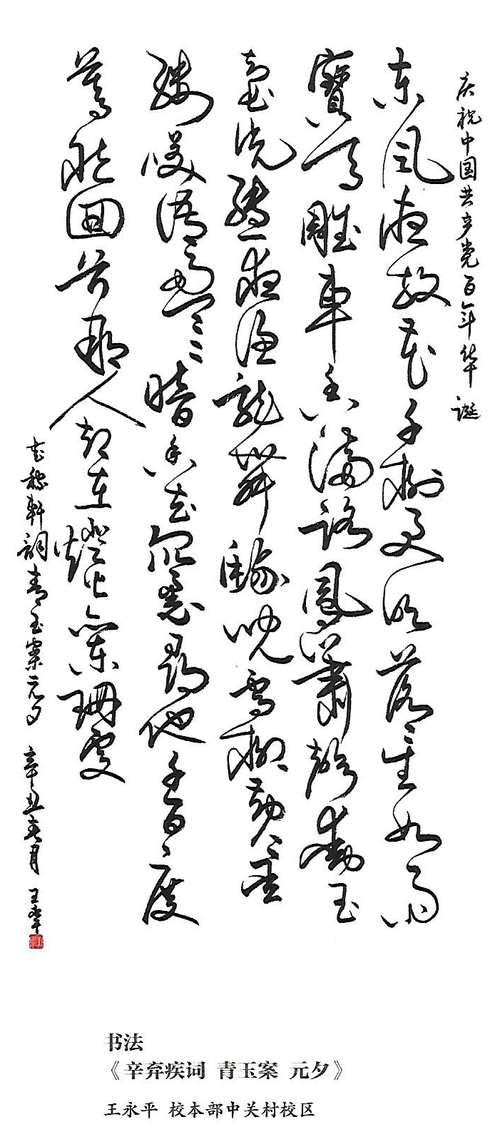 庆祝中国共产党百年华诞
东风夜放花千树更吹落星如雨
寳马雕車香满路鳳箫声动玉
壶光转一夜渔龍舞蛾儿雪柳黄金
缕笑语盈盈暗香去众里寻他千百度
蓦然回首那人却在燈火阑珊处
稼軒詞青玉案元夕 辛丑月 王永平
书法
《辛弃疾词 青玉案 元夕》
王永平 校本部中关村校区